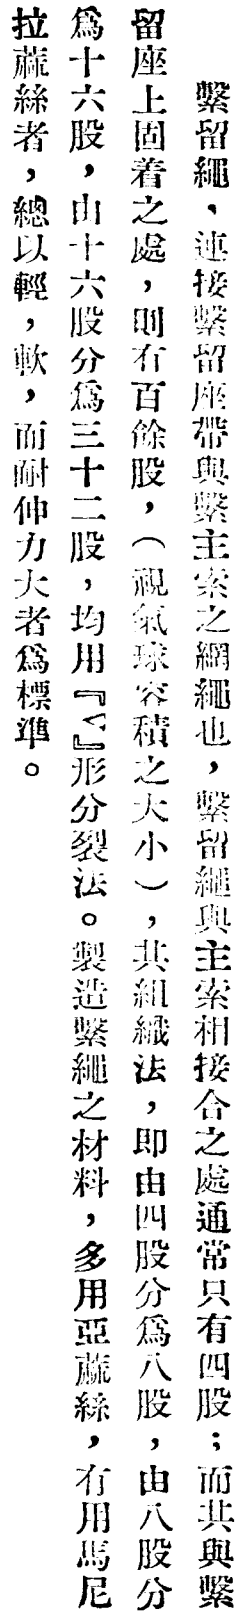 繫留繩，連接繫留座帶與繫主索之網繩也，繫留繩與主索相接合之處通常只有四股；而其與繫
留座上固着之處，則有百餘股，（視氣球容積之大小），其組織法，即由四股分爲八股，由八股分
爲十六股，由十六股分爲三十二股，均用『<』形分裂法。製造繫繩之材料，多用亞蔴絲，有用馬尼
拉蔴絲者，總以輕，軟，而耐伸力大者爲標準。